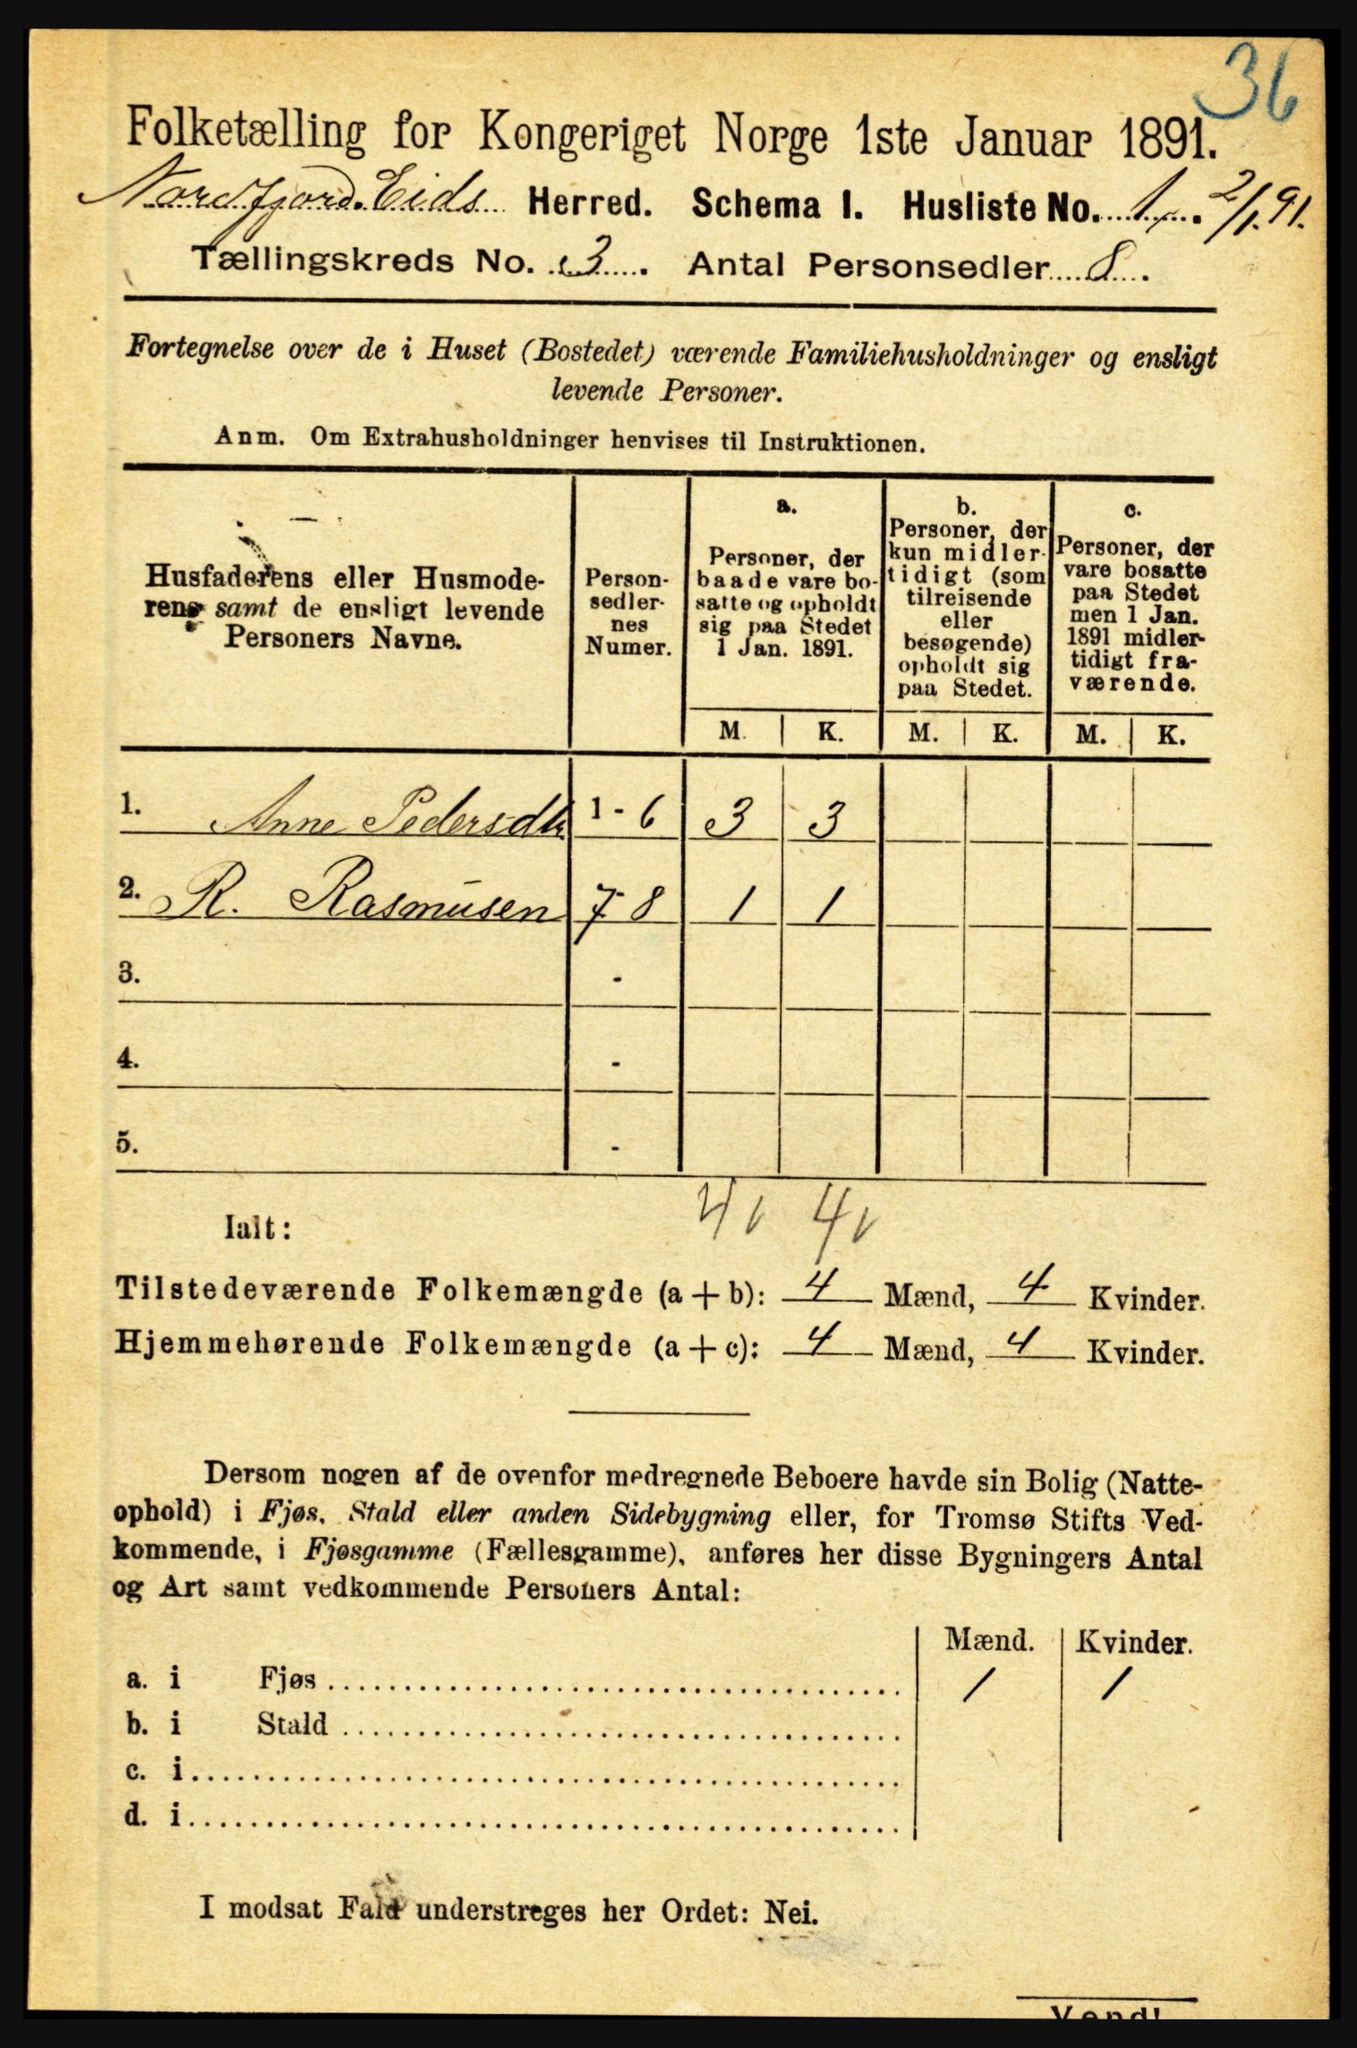 36
Folketælling for Kongeriget Norge 1ste Januar 1891.
Nordfjord. Eids Herred. Schema I. Husliste No. 1. 2/1.91.
Tællingskreds No. 3. Antal Personsedler 8.
Fortegnelse over de i Huset (Bostedet) værende Familiehusholdninger og ensligt
levende Personer.
Anm. Om Extrahusholdninger henvises til Instruktionen.
Husfaderens eller Husmode-
rens samt de ensligt levende
Personers Navne.
Person-
sedler-
nes
Numer.
a.
Personer, der
baade vare bo-
satte og opholdt
sig paa Stedet
1 Jan. 1891.
b.
Personer, der
kun midler-
tidigt (som
tilreisende
eller
besøgende)
opholdt sig
paa Stedet.
c.
Personer, der
vare bosatte
paa Stedet
men 1 Jan.
1891 midler-
tidigt fra-
værende.
M. K. M. K. M. K.
1. Anne Pedersdtr 1 - 6 3 3
2. R. Rasmusen 7 - 8 1 1
3. -
4. -
5. -
4 4
Ialt:
Tilstedeværende Folkemængde (a + b): 4 Mænd, 4 Kvinder.
Hjemmehørende Folkemængde (a + c): 4 Mænd, 4 Kvinder.
Dersom nogen af de ovenfor medregnede Beboere havde sin Bolig (Natte-
ophold) i Fjøs, Stald eller anden Sidebygning eller, for Tromsø Stifts Ved-
kommende, i Fjøsgamme (Fællesgamme), anføres her disse Bygningers Antal
og Art samt vedkommende Personers Antal:
Mænd. Kvinder.
a. i Fjøs 1 1
b. i Stald
c. i
d. i
I modsat Fald understreges her Ordet: Nei.
Vend!